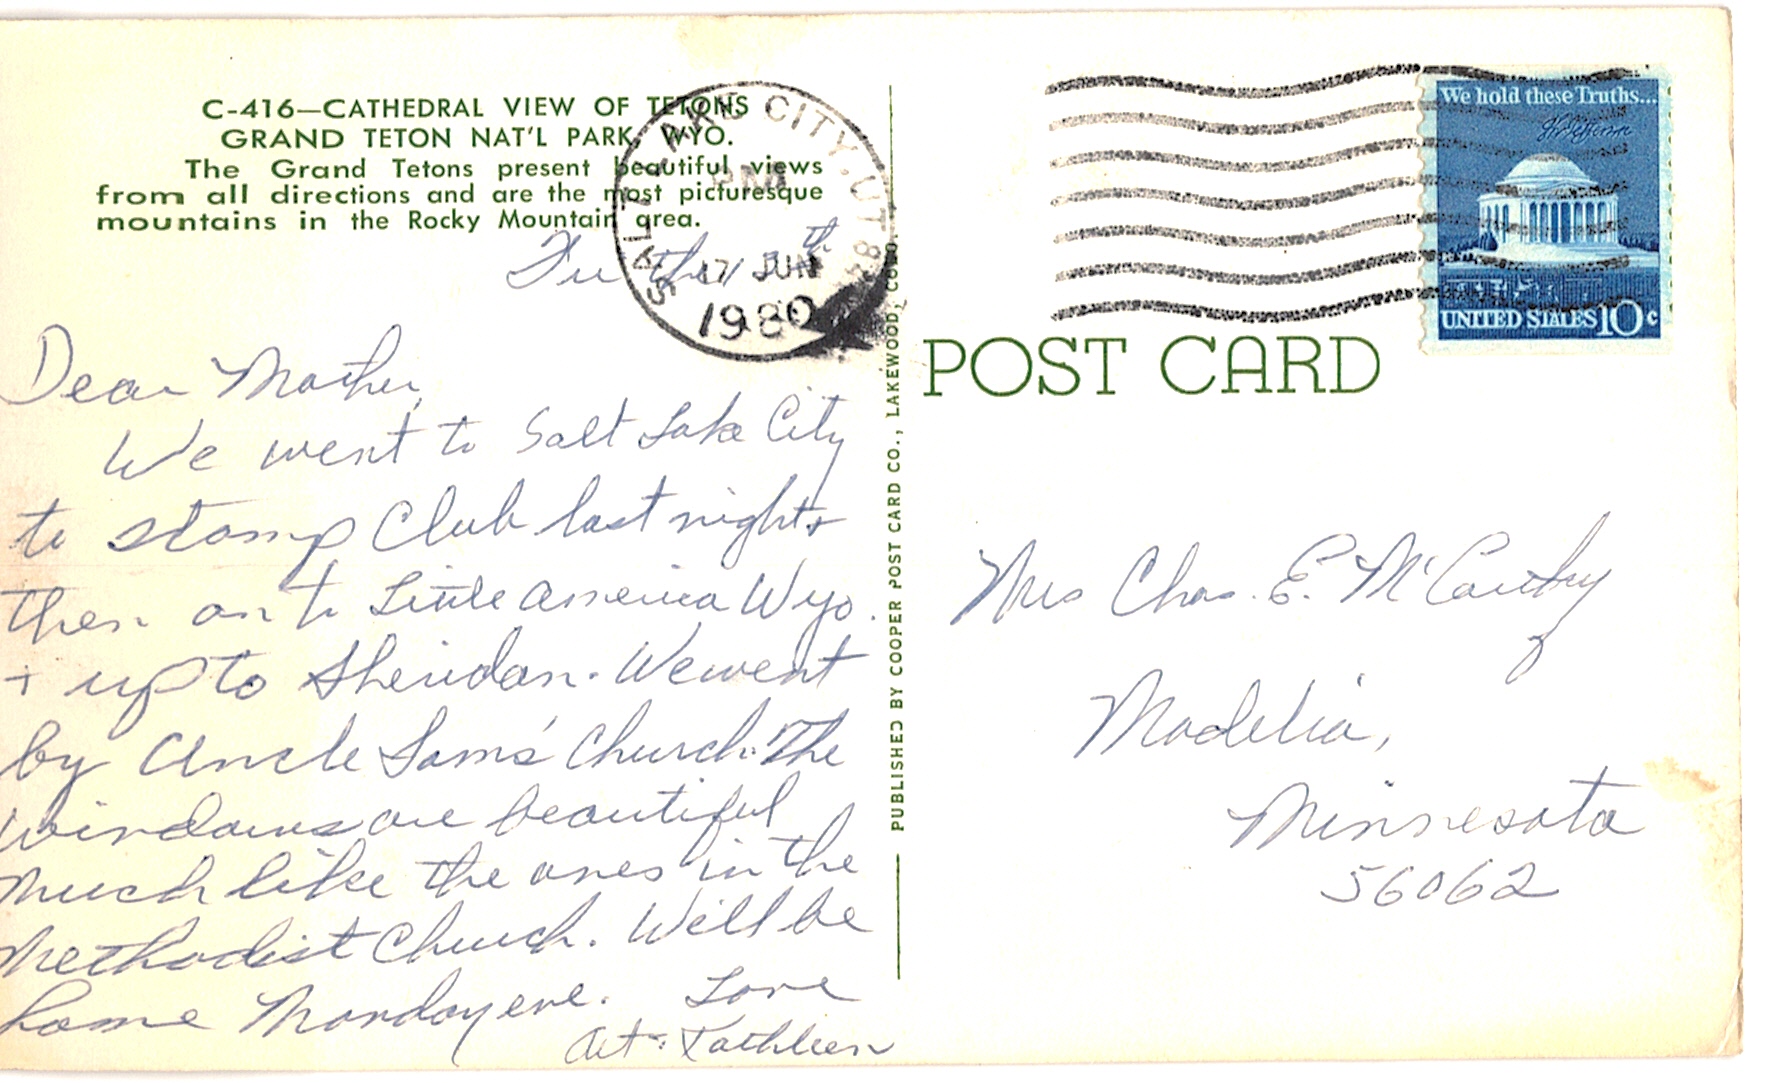 C-416—CATHEDRAL VIEW OF TETONS
GRAND TETON NAT'L PARK, WYO.
The Grand Tetons present beautiful views
from all directions and are the most picturesque
mountains in the Rocky Mountain area.
the th
Dear Mother,
We went to Salt Lake City
to stamp Club last night +
then on to Little America Wyo.
+ up to Sheridan. We went
by Uncle Sams' Church. The
windows are beautiful
much like the ones in the
Methodist Church. Will be
home Monday eve. Love
Art + Kathleen
SALT LAKE CITY, UT
PM
17 JUN
1980
PUBLISHED BY COOPER POST CARD CO., LAKEWOOD, COLO.
We hold these Truths...
Th Jefferson
UNITED STATES 10c
POST CARD
Mrs Chas. E. McCarthy
Madelia,
Minnesota
56062